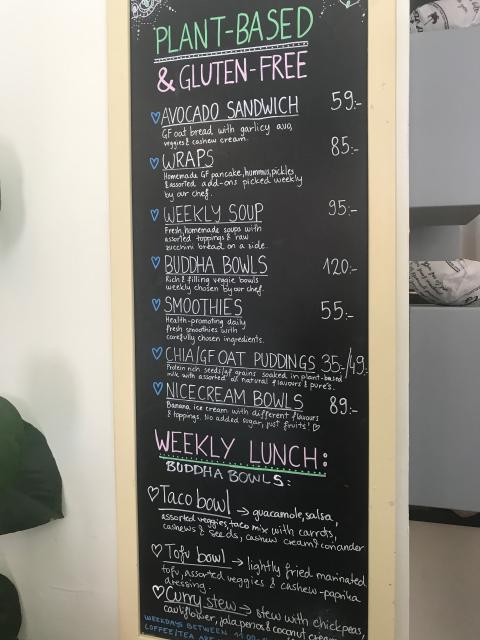 PLANT-BASED
& GLUTEN-FREE
AVOCADO SANDWICH 59:-
GF oat bread with garlicy avo,
veggies & cashew cream.
WRAPS 85:-
Homemade GF pancake, hummus, pickles
& assorted add-ons picked weekly
by our chef.
WEEKLY SOUP 95:-
Fresh, homemade soups with
assorted toppings & raw
zucchini bread on a side.
BUDDHA BOWLS 120:-
Rich & filling veggie bowls
weekly chosen by our chef.
SMOOTHIES 55:-
Health-promoting daily
fresh smoothies with
carefully chosen ingredients.
CHIA/GF OAT PUDDINGS 35:-/49:-
Protein rich seeds/gf grains soaked in plant-based
milk with assorted all natural flavours & pure's.
NICECREAM BOWLS 89:-
Banana ice cream with different flavours
& toppings. No added sugar, just fruits!
WEEKLY LUNCH:
BUDDHA BOWLS:
Taco bowl → guacamole, salsa,
assorted veggies, taco mix with carrots,
cashews & seeds, cashew cream & coriander
Tofu bowl → lightly fried marinated
tofu, assorted veggies & cashew-paprika
dressing.
Curry stew → stew with chickpeas,
cauliflower, jalapenos & coconut cream
WEEKDAYS BETWEEN 11:00-
COFFEE/TEA